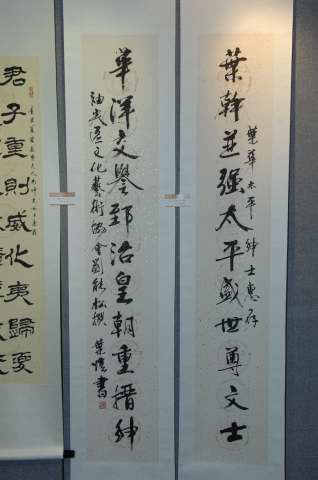 葉華太平紳士惠存
葉幹並强太平盛世尊文士
華洋交譽郅治皇朝重搢紳
油尖區文化藝術協會劉能松撰 葉愷書
君子重則威化夷歸夏